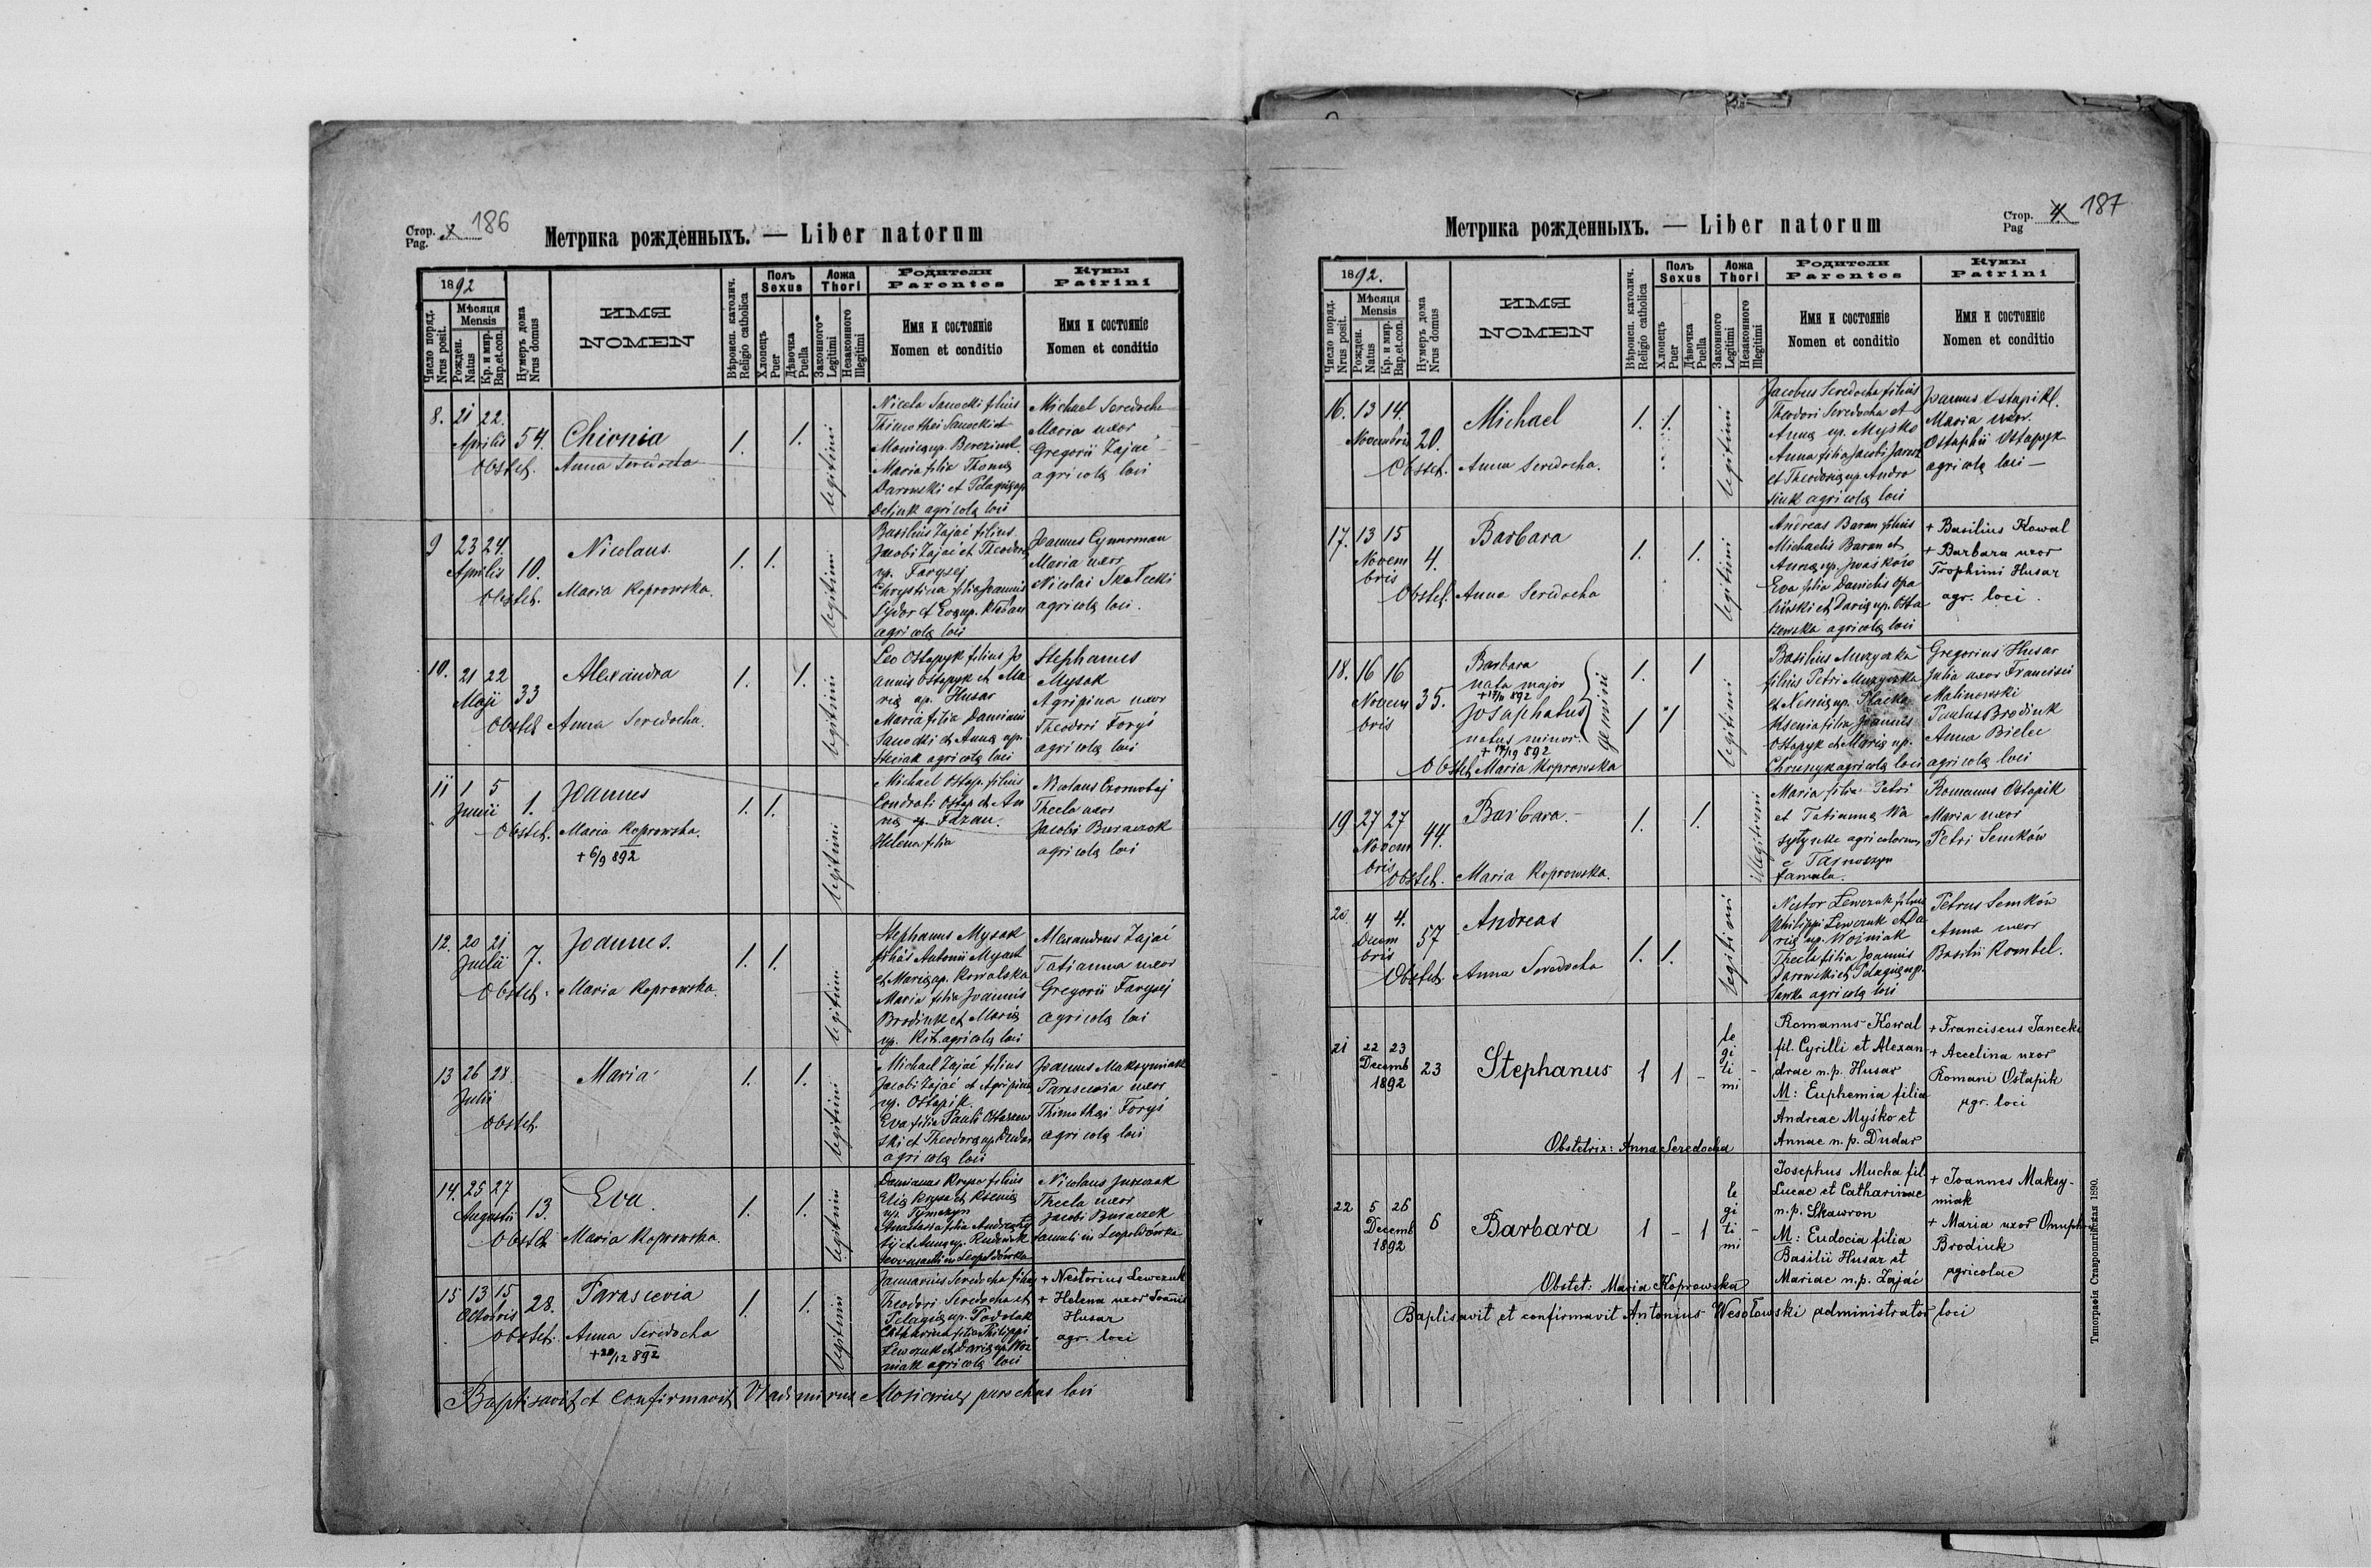 Стор.
Pag.
186
Метрика рожденныхъ. — Liber natorum
1892
Число поряд.
Nrus posit.
Мѣсяця
Mensis
Рожден.
Natus
Кр. и мир.
Bap. et. con.
Нумеръ дома
Nrus domus
ИМЯ
NOMEN
Вѣроисп. католич.
Religio catholica
Полъ
Sexus
Хлопецъ
Puer
Дѣвочка
Puella
Ложа
Thori
Законного
Legitimi
Незаконного
Illegitimi
Родители
Parentes
Имя и состоянiе
Nomen et conditio
Кумы
Patrini
Имя и состоянiе
Nomen et conditio
8. 21 22.
Aprilis 54. Chionia 1. 1. legitimi
Obstet. Anna Seredocha
Nicola Sanocki filius
Thimothei Sanocki et
Maria filia Thomę
Darowski et Pelagię up
agricolę loci
Michael Seredocha
Maria uxor
Gregorii Zajać
agricolę loci
9 23 24.
Aprilis 10. Nicolaus. 1. 1. legitimi
Obstet. Maria Koprowska.
Basilius Zajać filius
Jacobi Zajać et Theodorę
up. Faryzej
Chrystina filia Joannis
agricolę loci
Joannes Cymerman
Maria uxor
Nicolai
agricolę loci.
10. 21 22
Maji 33 Alexandra 1. 1. legitimi
Obstet Anna Seredocha.
Leo Ostapyk filius Jo
annis Ostapyk et Ma
rię up. Husar
Maria filia Damiani
Sanocki et Annę up.
agricolę loci
Stephanus
Mysak
Agripina uxor
Theodori Foryś
agricolę loci
11 1 5
Junii 1. Joannes 1. 1. legitimi
Obstet. Maria Koprowska.
+ 6/9 892
Michael Ostap. filius
Condrati Ostap et An
nę up.
Helena filia
Nicolaus Czornobaj
Thecla uxor
Jacobi Buraczok
agricolę loci
12. 20 21
Julii 7. Joannes. 1. 1. legitimi
Obstet. Maria Koprowska.
Stephanus Mysak
filius Antonii Mysak
et Marię up. Kowalska
Maria filia Joannis
Brodiuk et Marię
up. Kit. agricolę loci
Alexandrus Zajać
Tatianna uxor
Gregorii Faryzej
agricolę loci
13 26 28
Julii Maria 1. 1. legitimi
Obstet.
Michael Zajać filius
Jacobi Zajać et Agripinę
up. Ostapik.
Eva filia Pauli Ostaszew
ski et Theodorę up. Dudar
agricolę loci
Joannes Maksymiak
Parascevia uxor
Thimothei Foryś
agricolę loci
14. 25 27
Augusti 13. Eva 1. 1. legitimi
Obstet Maria Koprowska.
Damianus Krysa filius
Elię Krysa et Ksenię
up. Tymczyn
Anastasia filia Andreę
Nicolaus Jurczak
Thecla uxor
Jacobi Buraczek
famuli in Leopoldówka
15 13 15
Octobris 28. Parascevia 1. 1. legitimi
Obstet. Anna Seredocha
+ 20/12 892
Januarius Seredocha filius
Theodori Seredocha et
Pelagię up. Podolak
Catharina filia Philippi
Lewczuk et Darię up. Woź
niak agricolę loci
+ Nestorius Lewczuk
+ Helena uxor Joannis
Husar
agr. loci
Baptisavit et confirmavit Vladimirus parochus loci
Стор.
Pag
187
Метрика рожденныхъ. — Liber natorum
1892.
Число поряд.
Nrus posit.
Мѣсяця
Mensis
Рожден.
Natus
Кр. и мир.
Bap. et. con.
Нумеръ дома
Nrus domus
ИМЯ
NOMEN
Вѣроисп. католич.
Religio catholica
Полъ
Sexus
Хлопецъ
Puer
Дѣвочка
Puella
Ложа
Thori
Законного
Legitimi
Незаконного
Illegitimi
Родители
Parentes
Имя и состоянiе
Nomen et conditio
Кумы
Patrini
Имя и состоянiе
Nomen et conditio
16. 13 14.
Novembris 20. Michael 1. 1. legitimi
Obstet. Anna Seredocha.
Jacobus Seredocha filius
Theodori Seredocha et
Annę up. Myśko
Anna filia Jacobi
et Theodorię up. Andro
siuk agricolę loci
Joannes Ostapik.
Maria uxor
Ostaphii Ostapyk
agricolę loci —
17. 13 15
Novem
bris 4. Barbara 1. 1. legitimi
Obstet. Anna Seredocha
Andreas Baran filius
Michaelis Baran et
Annę up. Iwaśków
Eva filia Danielis Opa
liński et Darię up. Osta
szewska agricolę loci
+ Basilius Kowal
+ Barbara uxor
Trophimi Husar
agr. loci.
18. 16 16
Novem
bris 35. Barbara
nata major
+ 17/11 892
Josaphatus
natus minor.
892
gemini 1. 1
1 1 legitimi
Obstet Maria Koprowska
Basilius Muzyczka
filius Petri Muzyczka
et Xenię up.
Ksenia filia Joannis
Ostapyk et Marię up.
agricolę loci
Gregorius Husar
Julia uxor Francisci
Malinowski
Paulus Brodiuk
Anna Bielec
agricolę loci
19 27 27
Novem
bris 44. Barbara. 1. 1. illegitimi
Obstet. Maria Koprowska.
Maria filia Petri
et Tatiannę Wa
agricolorum
e Tarnoszyn
famula.
Romanus Ostapik
Maria uxor
Petri Semków
20 4 4.
Decem
bris 57 Andreas 1. 1. legitimi
Obstet. Anna Seredocha
Nestor Lewczuk filius
Philippi Lewczuk et Da
rię up. Woźniak
Thecla filia Joannis
Darowski et Pelagię up.
Sawka agricolę loci
Petrus Semków
Anna uxor
Basilii Kombel.
21 22 23
Decemb
1892 23 Stephanus 1 1 - le
gi
ti
mi -
Obstetrix: Anna Seredocha
Romanus Kowal
fil. Cyrilli et Alexan
drae n.p. Husar
M: Euphemia filia
Andreae Myśko et
Annae n.p. Dudar
+ Franciscus Janecki
+ Accelina uxor
Romani Ostapik
agr. loci
22 5 26
Decemb
1892 6 Barbara 1 - 1 le
gi
ti
mi -
Obstet: Maria Koprowska
Josephus Mucha fil.
Lucae et Catharinae
n.p. Skawron
M: Eudocia filia
Basilii Husar et
Mariae n.p. Zajać
+ Joannes Maksy-
miak
+ Maria uxor Onuphr
Brodiuk
agricolae
Baptisavit et confirmavit Antonius Wesołowski administrator loci
Типографія Ставропигійская 1890.